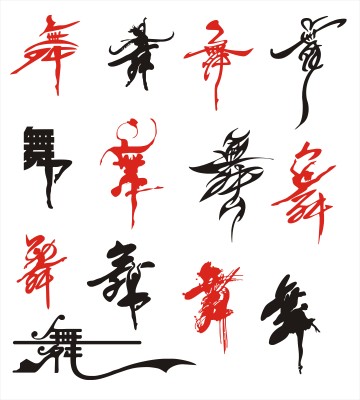 舞 舞 舞 舞
舞 舞 舞 舞
舞 舞 舞 舞
舞